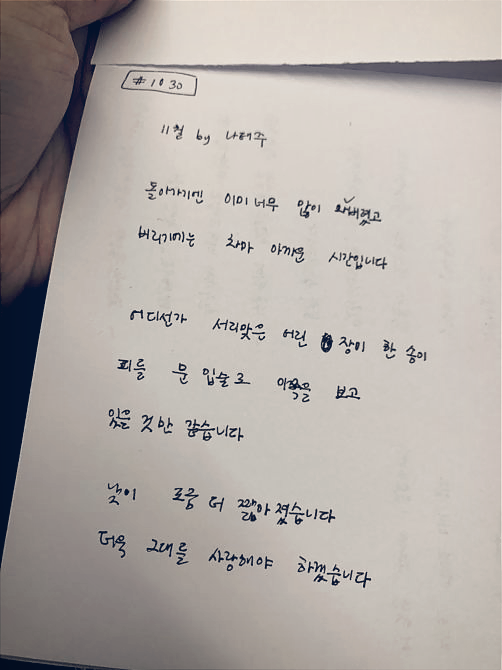 #1030
11월 by 나태주
돌아가기엔 이미 너무 많이 와버렸고
버리기에는 차마 아까운 시간입니다
어디선가 서리맞은 어린 장미 한 송이
피를 문 입술로 이쪽을 보고
있을 것만 같습니다
낮이 조금 더 짧아졌습니다
더욱 그대를 사랑해야 하겠습니다